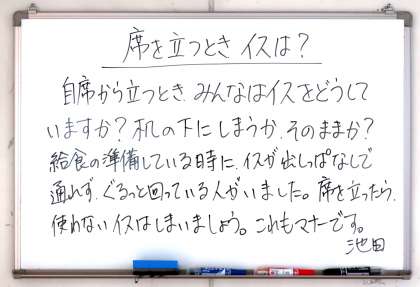 席を立つとき イスは？
自席から立つとき、みんなはイスをどうして
いますか？机の下にしまうか、そのままか？
給食の準備している時に、イスが出しっぱなしで
通れず、ぐるっと回っている人がいました。席を立ったら、
使わないイスはしまいましょう。これもマナーです。
池田